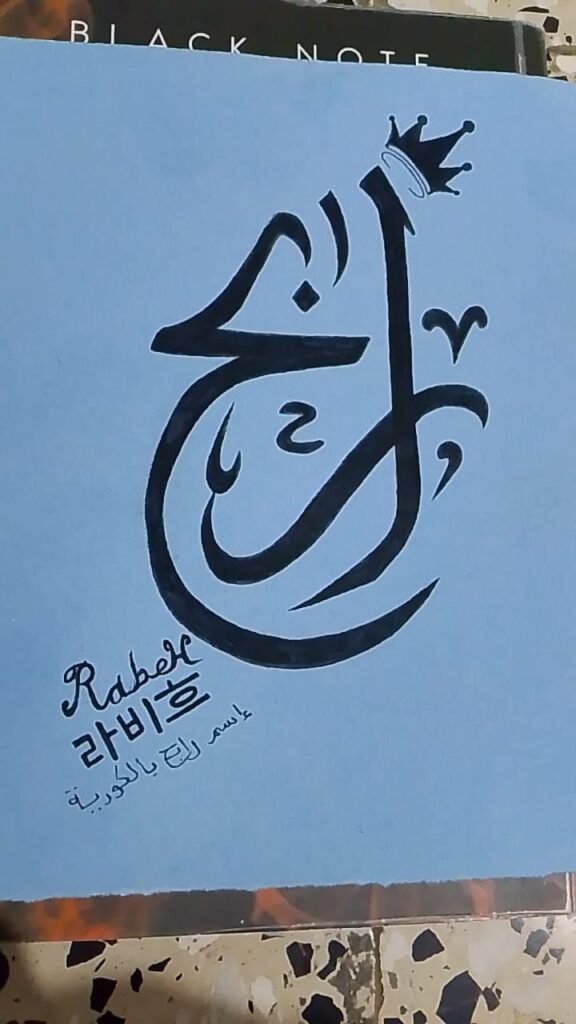 BLACK NOTE
رابح
RabeH
라비흐
إسم رابح بالكورية